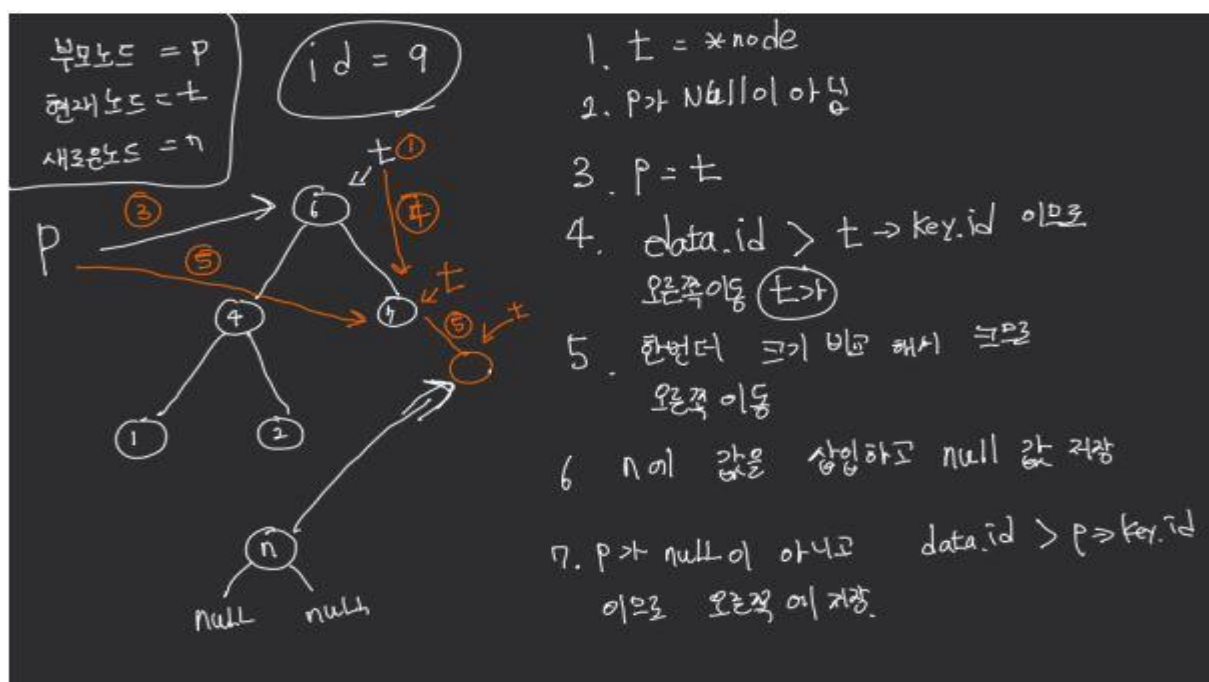 부모노드 = P
현재노드 = t
새로운노드 = n
id = 9
t ①
③
④
P
⑤
6
t
4
7
⑤
t
1
2
n
null null
1. t = *node
2. P가 Null이 아님
3. P = t
4. data.id > t → key.id 이므로
오른쪽이동 t가
5. 한번더 크기 비교 해서 크므로
오른쪽 이동
6 n에 값을 삽입하고 null 값 저장
7. P가 null이 아니고 data.id > P → key.id
이므로 오른쪽에 저장.